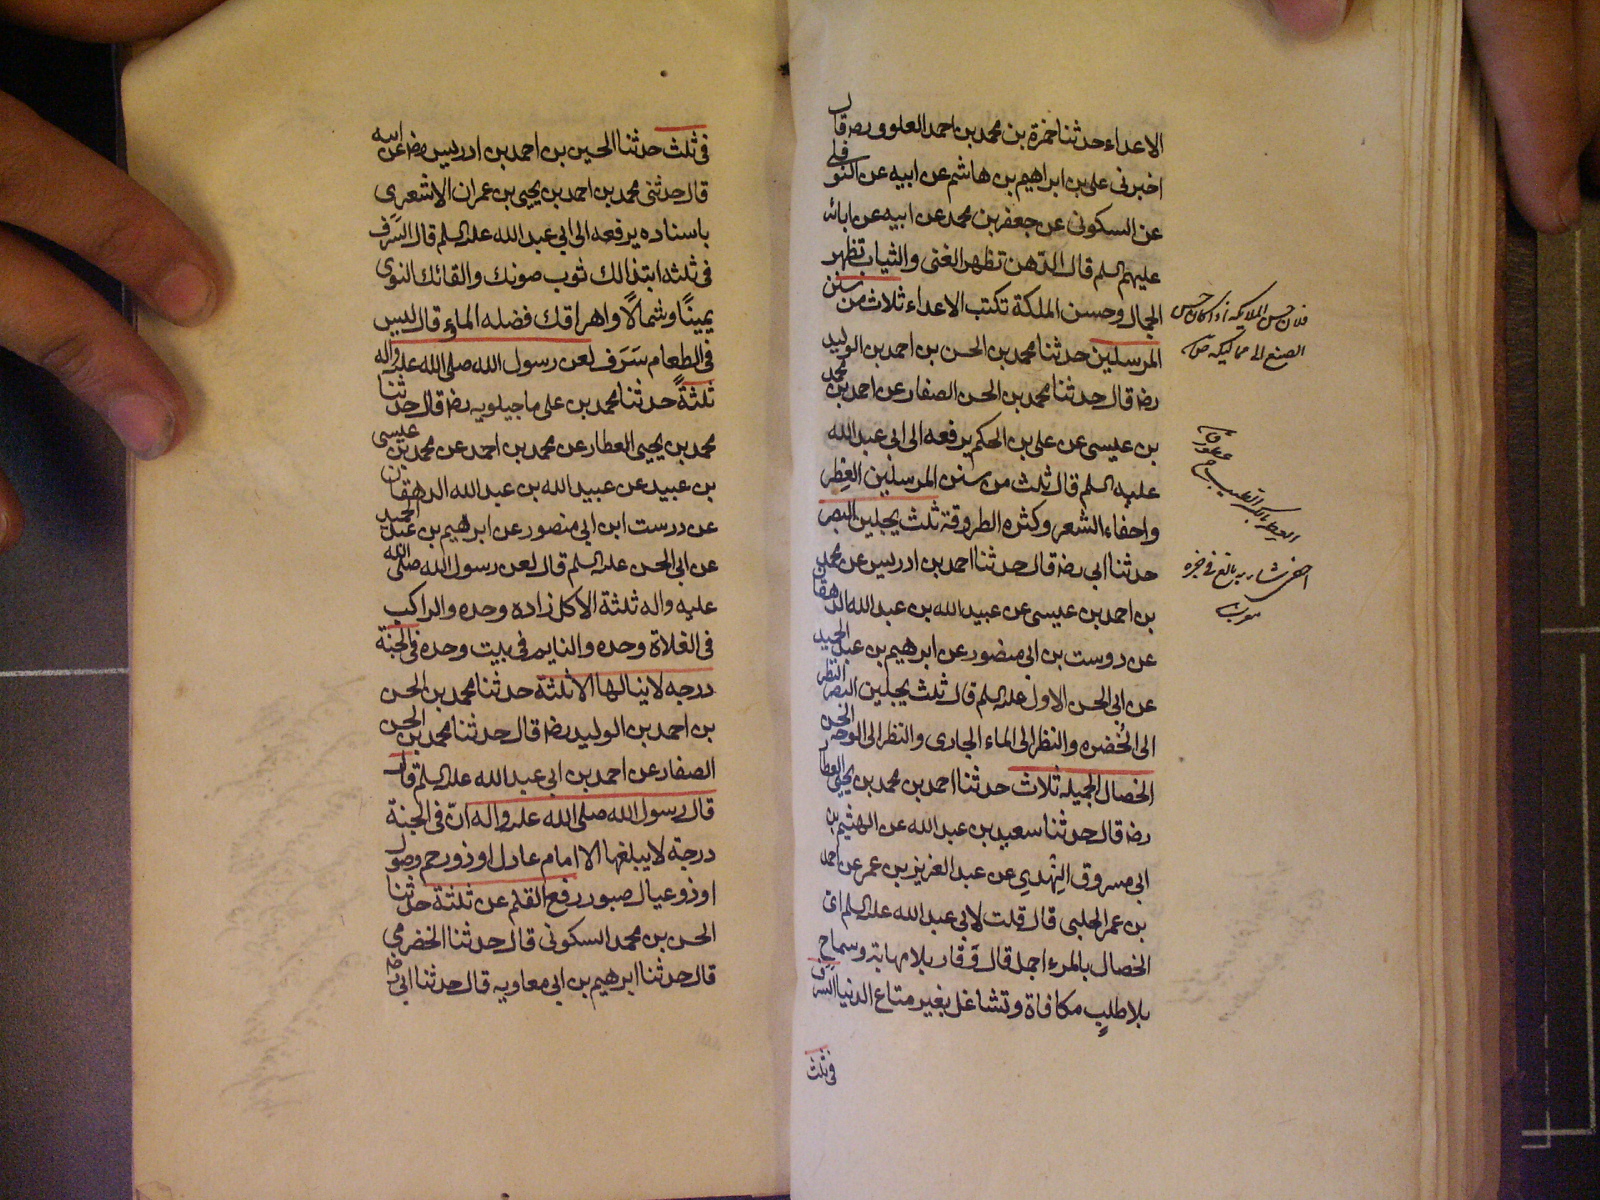 الاعداء حدثنا حمزة بن محمد بن احمد العلوى رضه قال
اخبرنى على بن ابراهيم بن هاشم عن ابيه عن النوفلى
عن السكونى عن جعفر بن محمد عن ابيه عن ابائه
عليهم السلم قال الدهن تظهر الغنى والثياب تظهر
الجمال وحسن الملكة تكبت الاعداء ثلاث من سنن
المرسلين حدثنا محمد بن الحسن بن احمد بن الوليد
رضه قال حدثنا محمد بن الحسن الصفار عن احمد بن محمد
بن عيسى عن على بن الحكم يرفعه الى ابى عبد الله
عليه السلم قال ثلث من سنن المرسلين العطر
واحفاء الشعر وكثره الطروقة ثلث يجلين البصر
حدثنا ابى رضه قال حدثنا احمد بن ادريس عن محمد
بن احمد بن عيسى عن عبيد الله بن عبد الله الدهقان
عن دوست بن ابى منصور عن ابرهيم بن عبد الحميد
عن ابى الحسن الاول عليه السلم قال ثلث يجلين البصر النظر
الى الخضره والنظر الى الماء الجارى والنظر الى الوجه الحسن
الخصال الجميله ثلاث حدثنا احمد بن محمد بن يحيى العطار
رضه قال حدثنا سعيد بن عبد الله عن الهثيم بن
ابى مسروق النهدي عن عبد العزيز بن عمر عن احمد
بن عمر الحلبى قال قلت لابى عبد الله عليه السلم اى
الخصال بالمرء اجمل قال وقار بلا مهابة وسماح
بلا طلب مكافاة وتشاغل بغير متاع الدنيا السرف
فى ثلث
فى ثلث حدثنا الحسين بن احمد بن ادريس رضى الله عنه
قال حدثنى محمد بن احمد بن يحيى بن عمران الاشعرى
باسناده يرفعه الى ابى عبد الله عليه السلم قال السرف
فى ثلثه ابتذالك ثوب صونك والقائك النوى
يمينًا وشمالاً واهراقك فضله الماء وقال ليس
فى الطعام سَرَف لعن رسول الله صلى الله عليه واله
ثلثةً حدثنا محمد بن على ماجيلويه رضه قال حدثنا
محمد بن يحيى العطار عن محمد بن احمد عن محمد بن عيسى
بن عبيد عن عبيد الله بن عبد الله الدهقان
عن درست ابن ابى منصور عن ابرهيم بن عبد الحميد
عن ابى الحسن عليه السلم قال لعن رسول الله صلى الله
عليه واله ثلثة الاكل زاده وحده والراكب
فى الفلاة وحده والنايم فى بيت وحده فى الجنة
درجه لا ينالها الا ثلثة حدثنا محمد بن الحسن
بن احمد بن الوليد رضه قال حدثنا محمد بن الحسن
الصفار عن احمد بن ابى عبد الله عليه السلم قال
قال رسول الله صلى الله عليه واله انّ فى الجنة
درجة لا يبلغها الا امام عادل او ذو رحم وصول
او ذو عيال صبور رفع القلم عن ثلثة حدثنا
الحسن بن محمد السكونى قال حدثنا الحضرمي
قال حدثنا ابرهيم بن ابى معاويه قال حدثنا ابى رضه